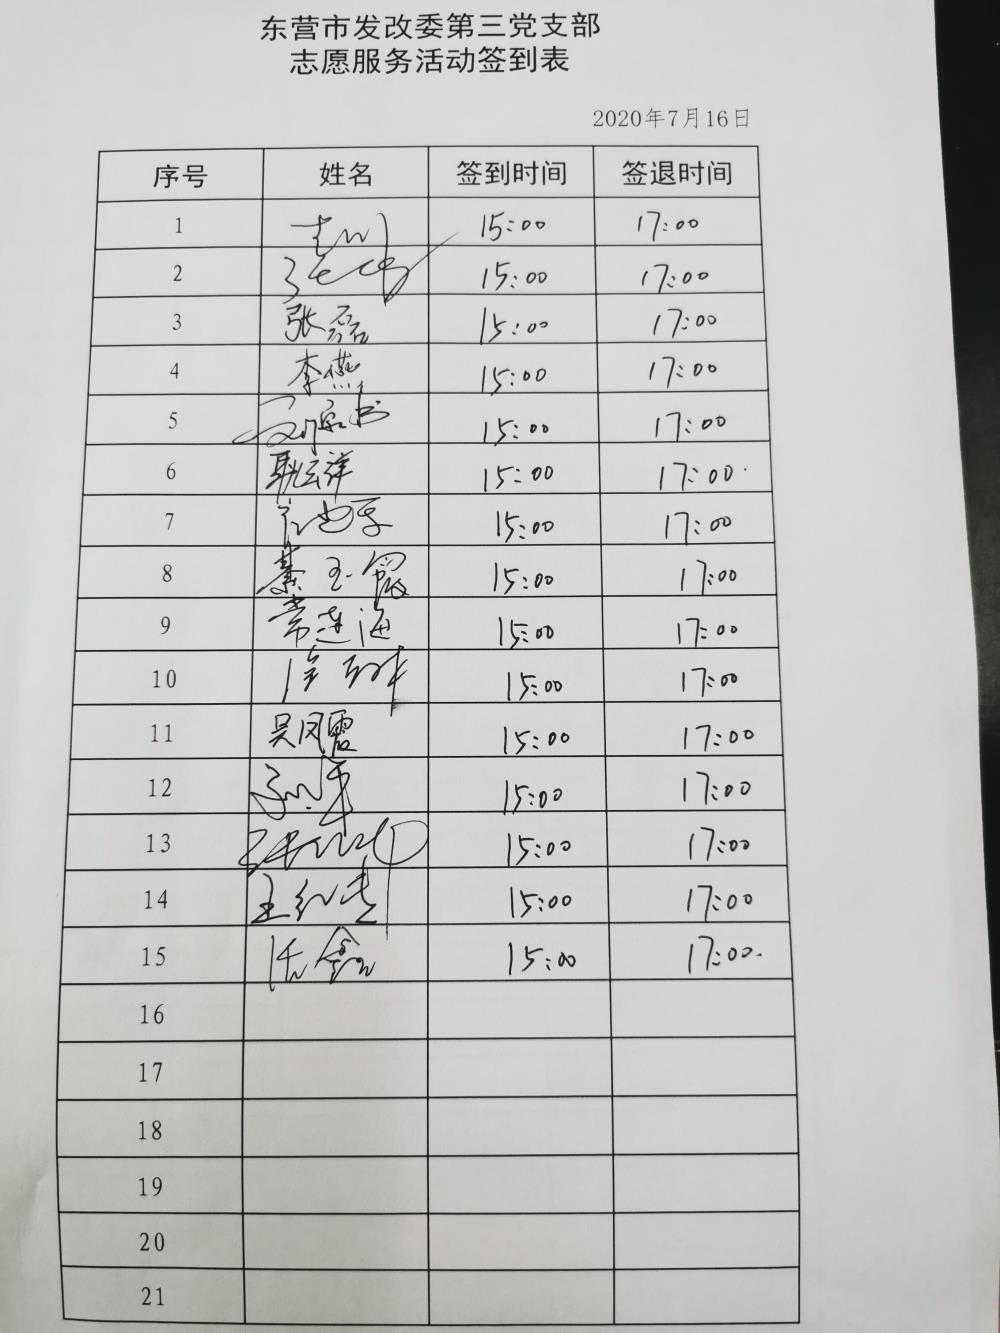 东营市发改委第三党支部
志愿服务活动签到表
2020年7月16日
序号 姓名 签到时间 签退时间
1 15:00 17:00
2 15:00 17:00
3 张磊 15:00 17:00
4 李燕 15:00 17:00
5 15:00 17:00
6 耿云祥 15:00 17:00
7 15:00 17:00
8 秦玉霞 15:00 17:00
9 常连海 15:00 17:00
10 15:00 17:00
11 吴凤霞 15:00 17:00
12 15:00 17:00
13 15:00 17:00
14 王红 15:00 17:00
15 鑫 15:00 17:00
16
17
18
19
20
21